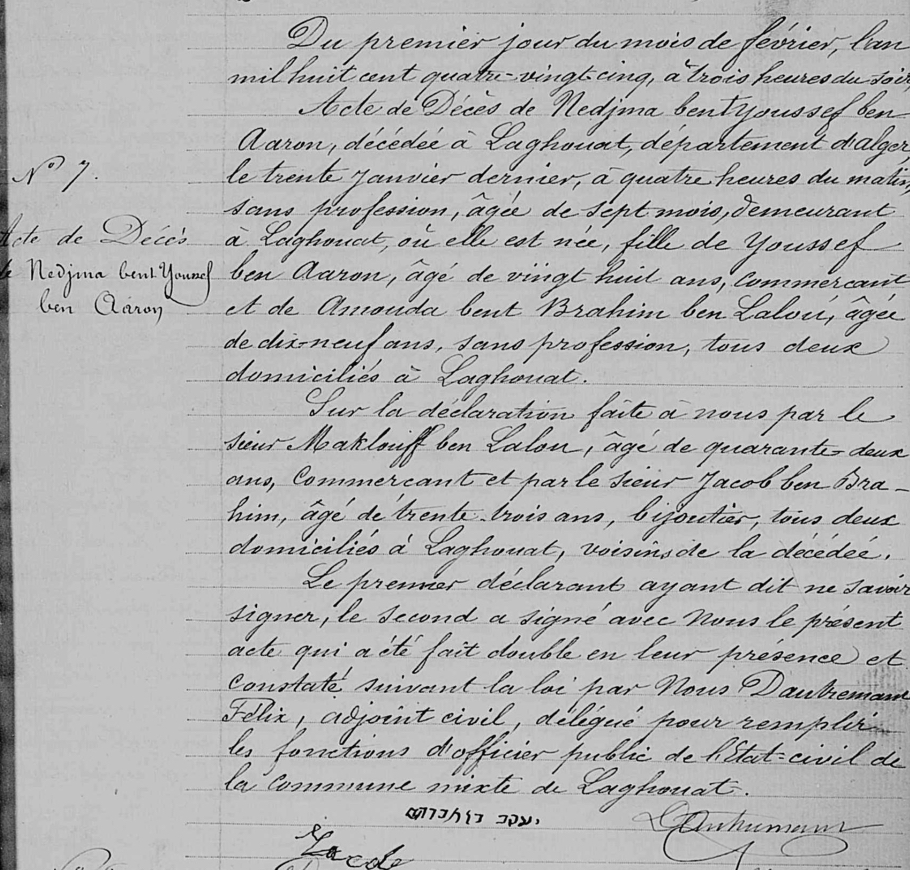 Du premier jour du mois de février, l'an
mil huit cent quatre-vingt-cinq, à trois heures du soir,
Acte de Décès de Nedjma bent Youssef ben
Aaron, décédée à Laghouat, département d'alger,
le trente Janvier dernier, à quatre heures du matin,
sans profession, âgée de sept mois, demeurant
à Laghouat, où elle est née, fille de Youssef
ben Aaron, âgé de vingt huit ans, commercant
et de Amouda bent Brahim ben Lalou, âgée
de dix-neuf ans, sans profession, tous deux
domiciliés à Laghouat.
Sur la déclaration faite à nous par le
sieur Maklouff ben Lalou, âgé de quarante-deux
ans, commercant et par le sieur Jacob ben Bra-
him, âgé de trente-trois ans, bijoutier, tous deux
domiciliés à Laghouat, voisins de la décédée.
Le premier déclarant ayant dit ne savoir
signer, le second a signé avec Nous le présent
acte qui a été fait double en leur présence et
constaté suivant la loi par Nous Dautremant
Félix, adjoint civil, délégué pour remplir
les fonctions d'officier public de l'Etat-civil de
la commune mixte de Laghouat.
N° 7.
Acte de Décès
de Nedjma bent Youssef
ben Aaron
יעקב